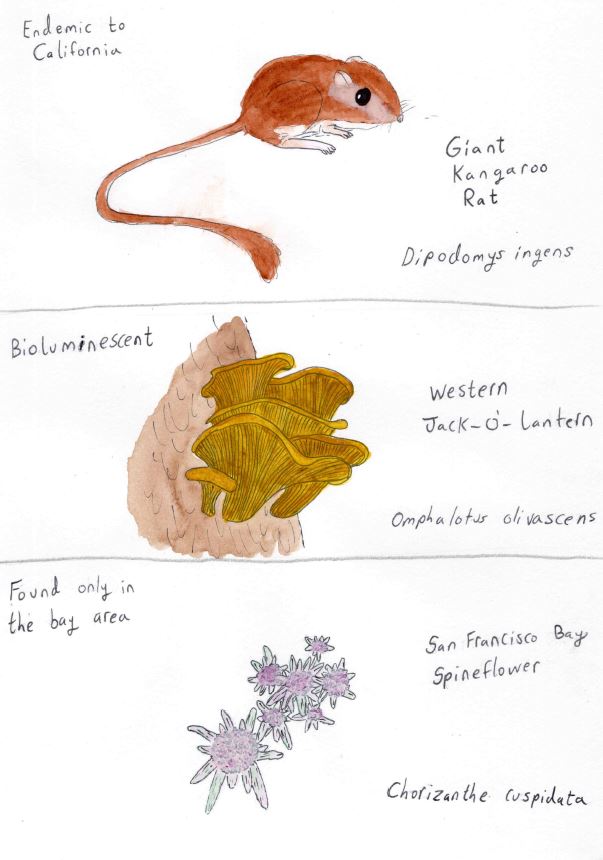 Endemic to
California
Giant
Kangaroo
Rat
Dipodomys ingens
Bioluminescent
Western
Jack-O'-lantern
Omphalotus olivascens
Found only in
the bay area
San Francisco Bay
Spineflower
Chorizanthe cuspidata